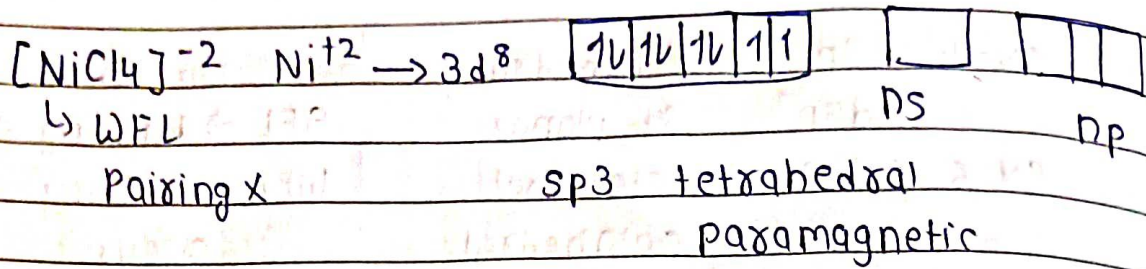 [NiCl4]⁻² Ni⁺² → 3d⁸ 1L 1L 1L 1 1
↳ WFL ns np
Pairing x sp3 tetrahedral
paramagnetic